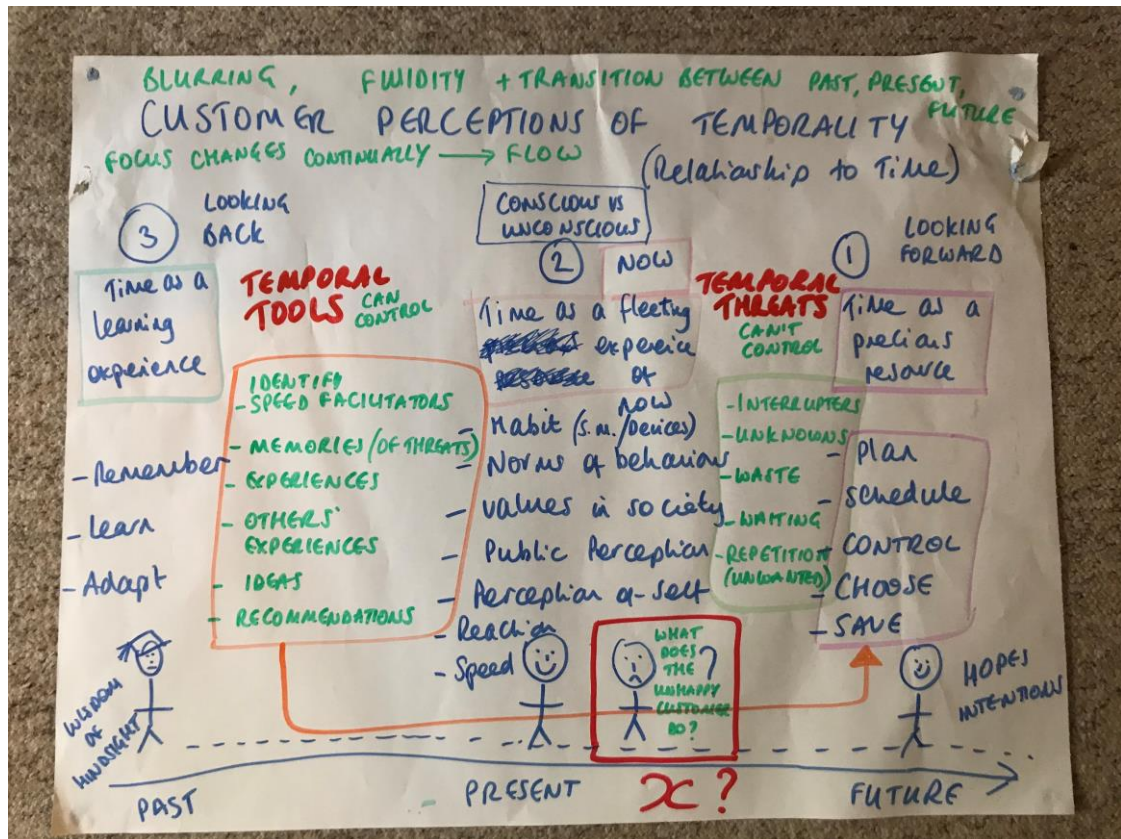 BLURRING, FLUIDITY + TRANSITION BETWEEN PAST, PRESENT, FUTURE
CUSTOMER PERCEPTIONS OF TEMPORALITY
FOCUS CHANGES CONTINUALLY → FLOW
(Relationship to Time)
3 LOOKING
BACK
Time as a
learning
experience
- Remember
- Learn
- Adapt
TEMPORAL
TOOLS CAN
CONTROL
IDENTIFY
- SPEED FACILITATORS
- MEMORIES (OF THREATS)
- EXPERIENCES
- OTHERS'
EXPERIENCES
- IDEAS
- RECOMMENDATIONS
CONSCIOUS VS
UNCONSCIOUS
2 NOW
Time as a fleeting
experience
of
NOW
- Habit (S.M./Devices)
- Norms of behaviour
- values in society
- Public Perception
- Perception of self
- Reaction
- Speed
TEMPORAL
THREATS
CAN'T
CONTROL
- INTERRUPTERS
- UNKNOWNS
- WASTE
- WAITING
- REPETITION
(UNWANTED)
1 LOOKING
FORWARD
Time as a
precious
resource
- Plan
- Schedule
- CONTROL
- CHOOSE
- SAVE
WISDOM
OF
HINDSIGHT
WHAT
DOES
THE ?
UNHAPPY
CUSTOMER
DO?
HOPES
INTENTIONS
PAST PRESENT x? FUTURE